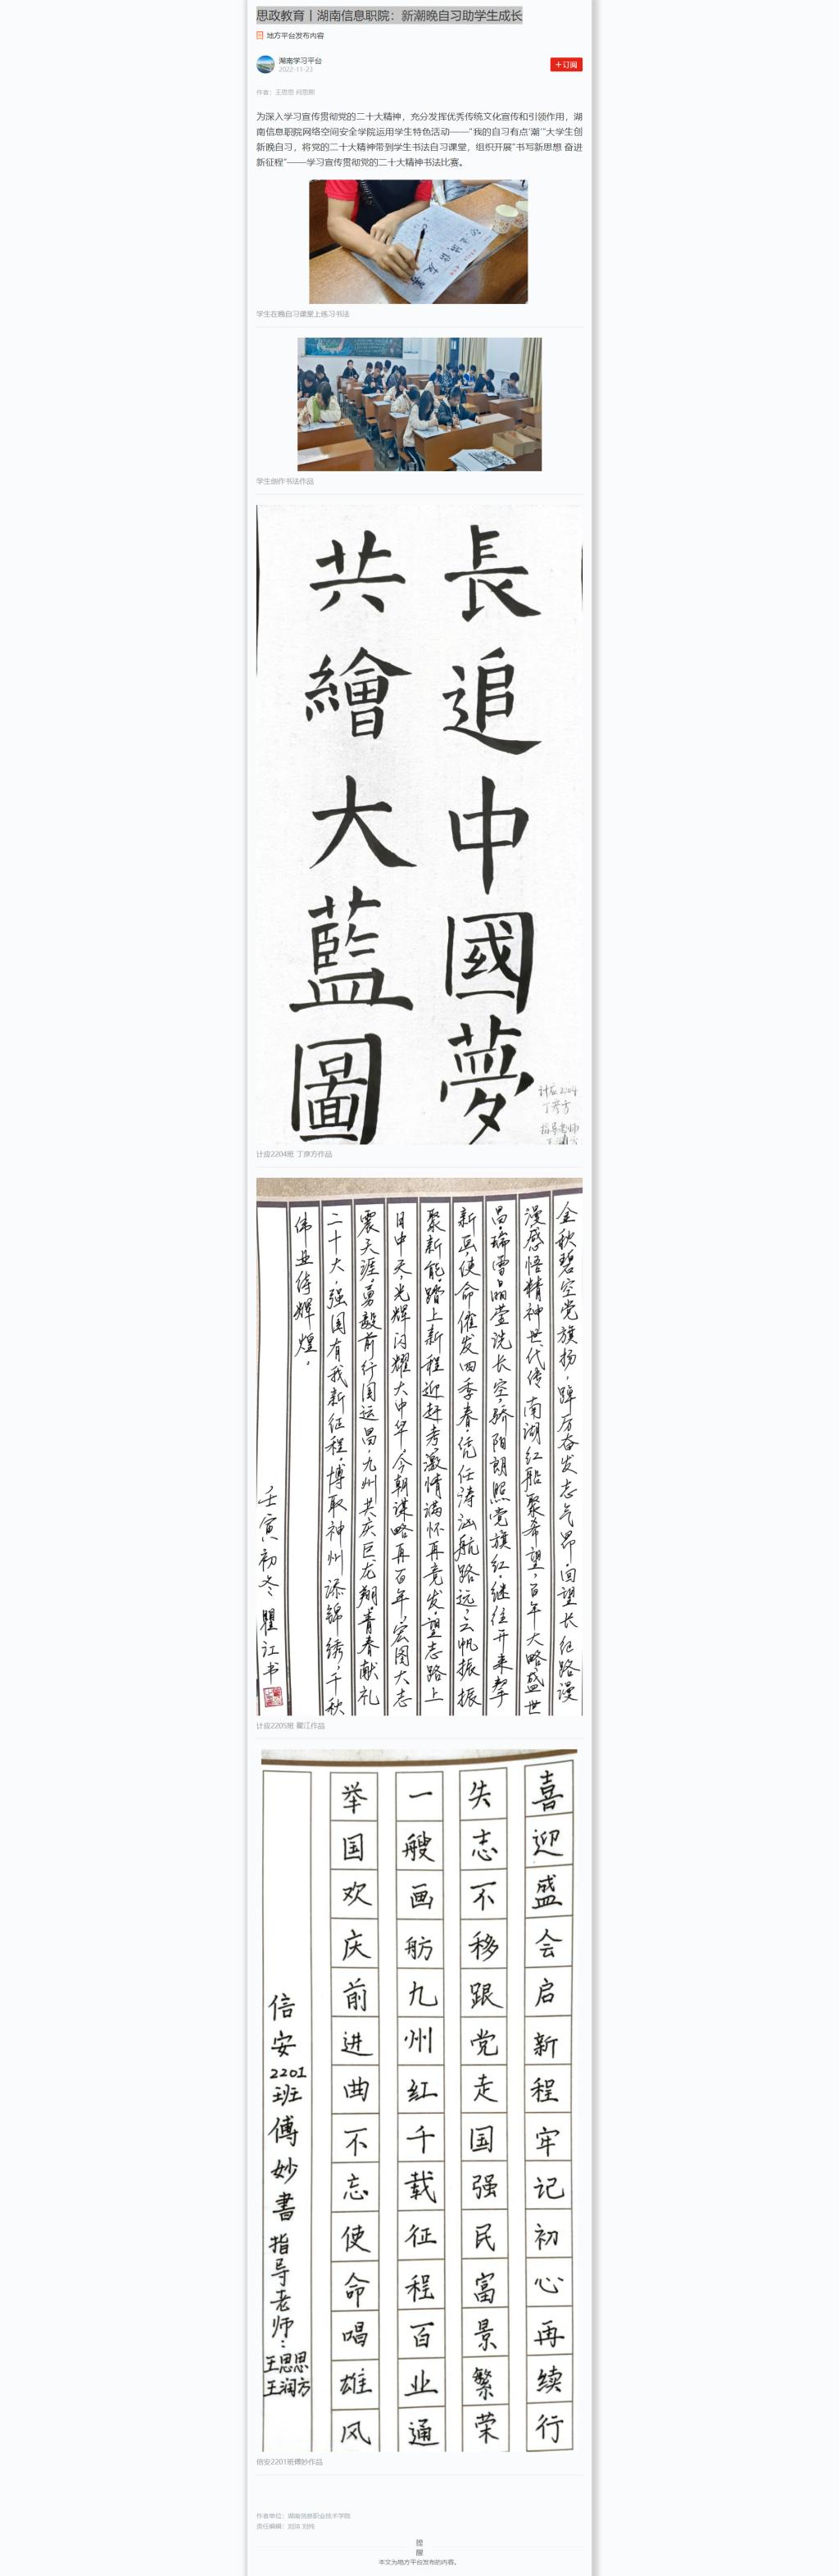 思政教育丨湖南信息职院：新潮晚自习助学生成长
地方平台发布内容
湖南学习平台
2022-11-23
＋订阅
为深入学习宣传贯彻党的二十大精神，充分发挥优秀传统文化宣传和引领作用，湖
南信息职院网络空间安全学院运用学生特色活动——“我的自习有点‘潮’”大学生创
新晚自习，将党的二十大精神带到学生书法自习课堂，组织开展“书写新思想 奋进
新征程”——学习宣传贯彻党的二十大精神书法比赛。
学生在晚自习课堂上练习书法
学生创作书法作品
長追中國夢
共繪大藍圖
计应2204
丁彦方
指导老师
计应2204班 丁彦方作品
金秋碧空党旗扬，踔厉奋发志气昂，回望长征路漫
漫感悟精神世代传 南湖红船聚希望，百年大略盛世
昌，瑞雪晶莹洗长空，骄阳朗照党旗红，继往开来擎
新画，使命催发四季春，凭任涛汹航路远，云帆振振
聚新能，踏上新程迎赶考激情满怀再竞发，望志路上
日中天，光辉闪耀大中华，今朝谋略再百年，宏图大志
震天涯，勇毅前行国运昌，九州共庆巨龙翔，青春献礼
二十大，强国有我新征程，博取神州添锦绣，千秋
伟业铸辉煌，
壬寅初冬 瞿江书
计应2205班 瞿江作品
喜迎盛会启新程牢记初心再续行
失志不移跟党走国强民富景繁荣
一艘画舫九州红千载征程百业通
举国欢庆前进曲不忘使命唱雄风
信安2201班傅妙書 指导老师：王思思
王润方
信安2201班傅妙作品
作者单位：湖南信息职业技术学院
提
醒
本文为地方平台发布的内容。